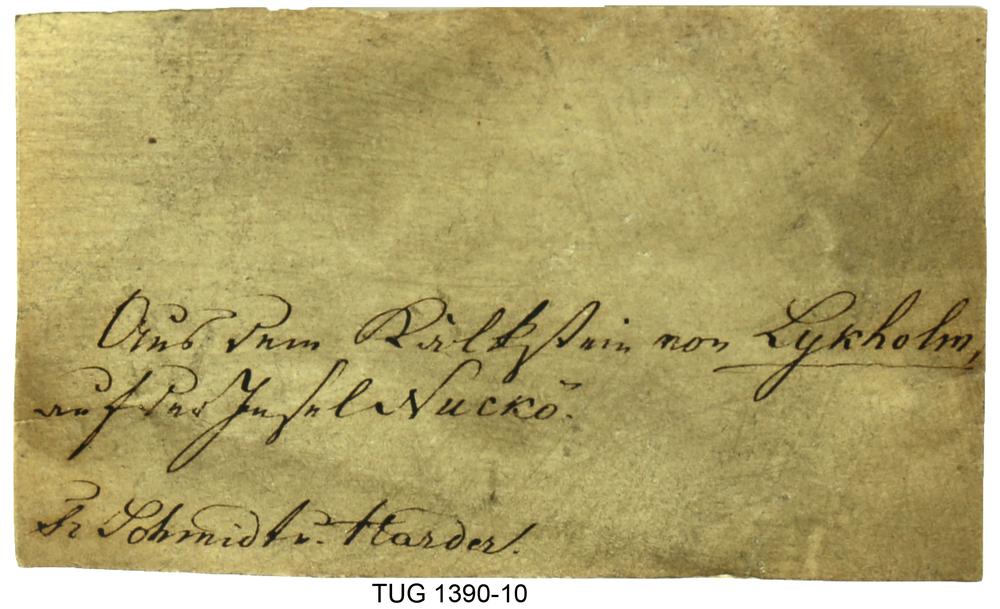 Aus dem Kalkstein von Lykholm,
auf der Insel Nuckö.
Fr Schmidt u. Harder.
TUG 1390-10